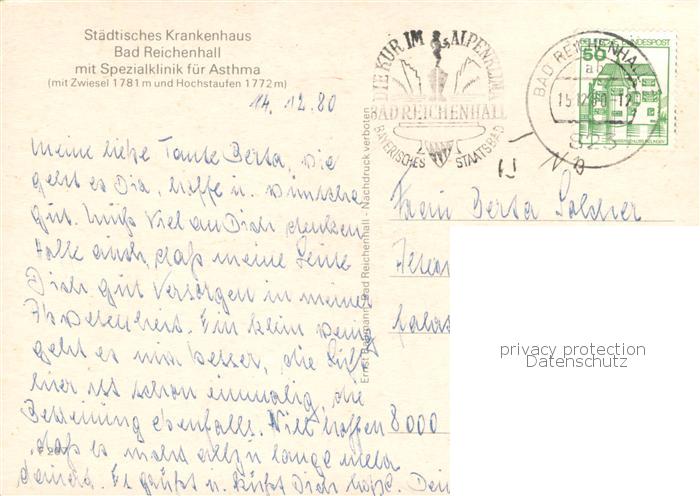 Städtisches Krankenhaus
Bad Reichenhall
mit Spezialklinik für Asthma
(mit Zwiesel 1781 m und Hochstaufen 1772 m)
14.12.80
Meine liebe Tante Berta, wie
geht es Dir, hoffe u. wünsche
gut. Muß viel an Dich denken
hoffe auch, daß meine Leute
Dich gut versorgen in meiner
Abwesenheit. Ein klein wenig
geht es mir besser, die Luft
hier ist schon einmalig, die
Betreuung ebenfalls. Will hoffen
daß es nicht allzu lange mehr
dauert. Es grüßt u. küßt Dich
F 267
Ernst Baumann, Bad Reichenhall - Nachdruck verboten
DIE KUR IM ALPENKLIMA
BAD REICHENHALL
BAYERISCHES STAATSBAD
BAD REICHENHALL
ab
15.12.80-12
823
50
DEUTSCHE BUNDESPOST
Frau Berta
8000
privacy protection
Datenschutz